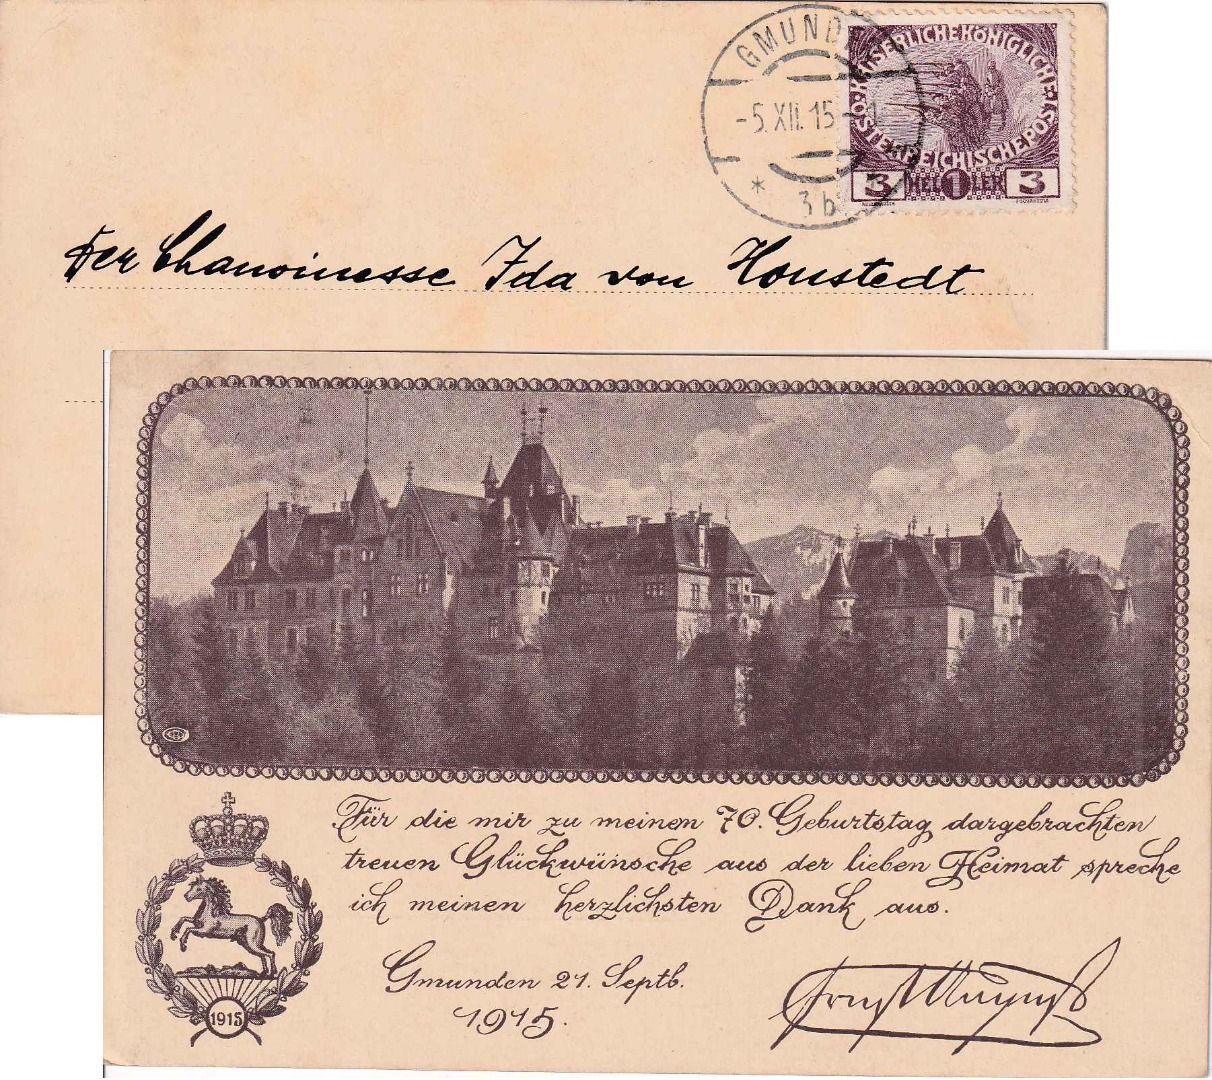 GMUNDEN
-5.XII.15-
* 3b
KAISERLICHEKÖNIGLICHE
ÖSTERREICHISCHEPOST
3 HELLER 1 3
Der Chanoinesse Ida von Honstedt
Für die mir zu meinem 70. Geburtstag dargebrachten
treuen Glückwünsche aus der lieben Heimat spreche
ich meinen herzlichsten Dank aus.
Gmunden 21. Septb.
1915.
Ernst August
1915